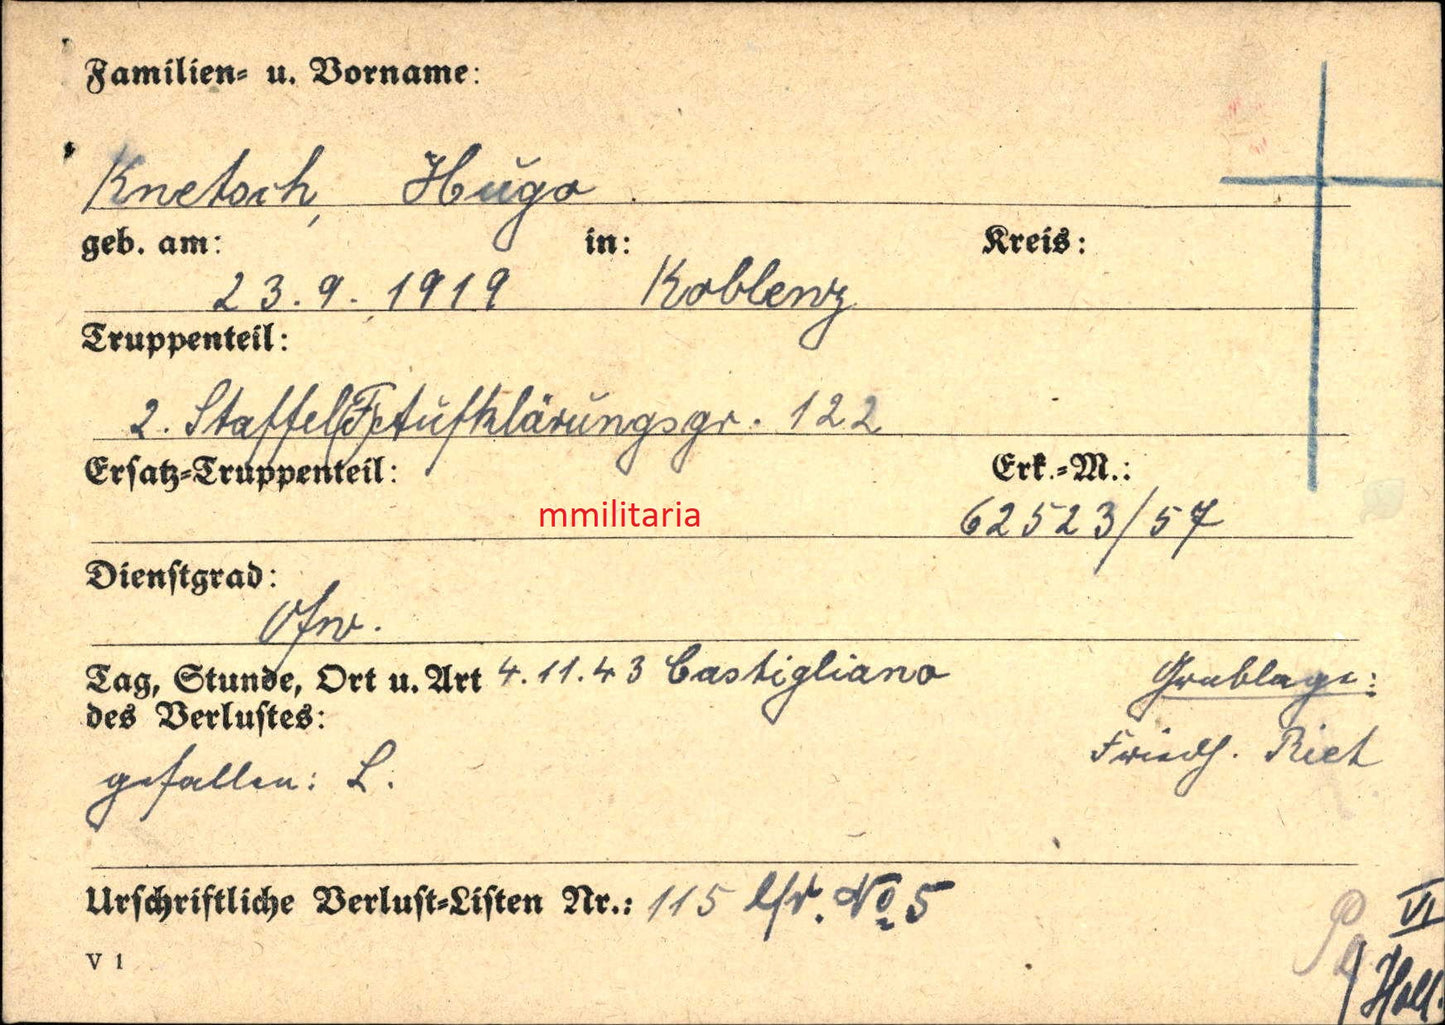 Familien- u. Vorname:
Knetsch, Hugo
geb. am: in: Kreis:
23.9.1919 Koblenz
Truppenteil:
2. Staffel (F) Aufklärungsgr. 122
Ersatz-Truppenteil: Erk.-M.:
mmilitaria
62523/57
Dienstgrad:
Ofw.
Tag, Stunde, Ort u. Art 4.11.43 Castigliano
des Verlustes:
Grablage:
Friedh. Riet
gefallen: L.
Urschriftliche Verlust-Listen Nr.: 115 lfd. No 5
VI
V 1